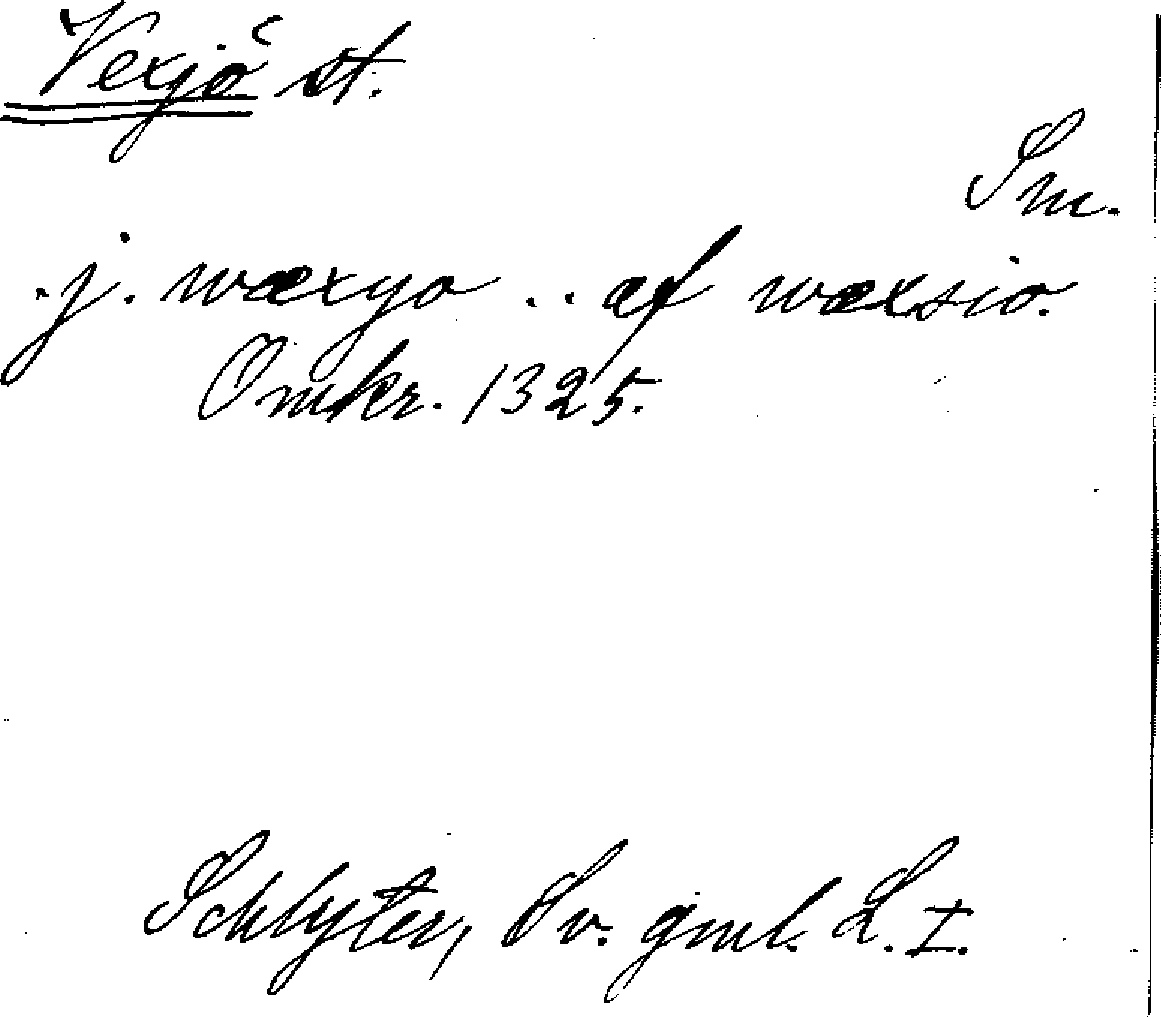 Vexjö st.
Sm.
.j. wæxyo .. af wæxsio.
Omkr. 1325.
Schlyter, Sv. gml. L. I.